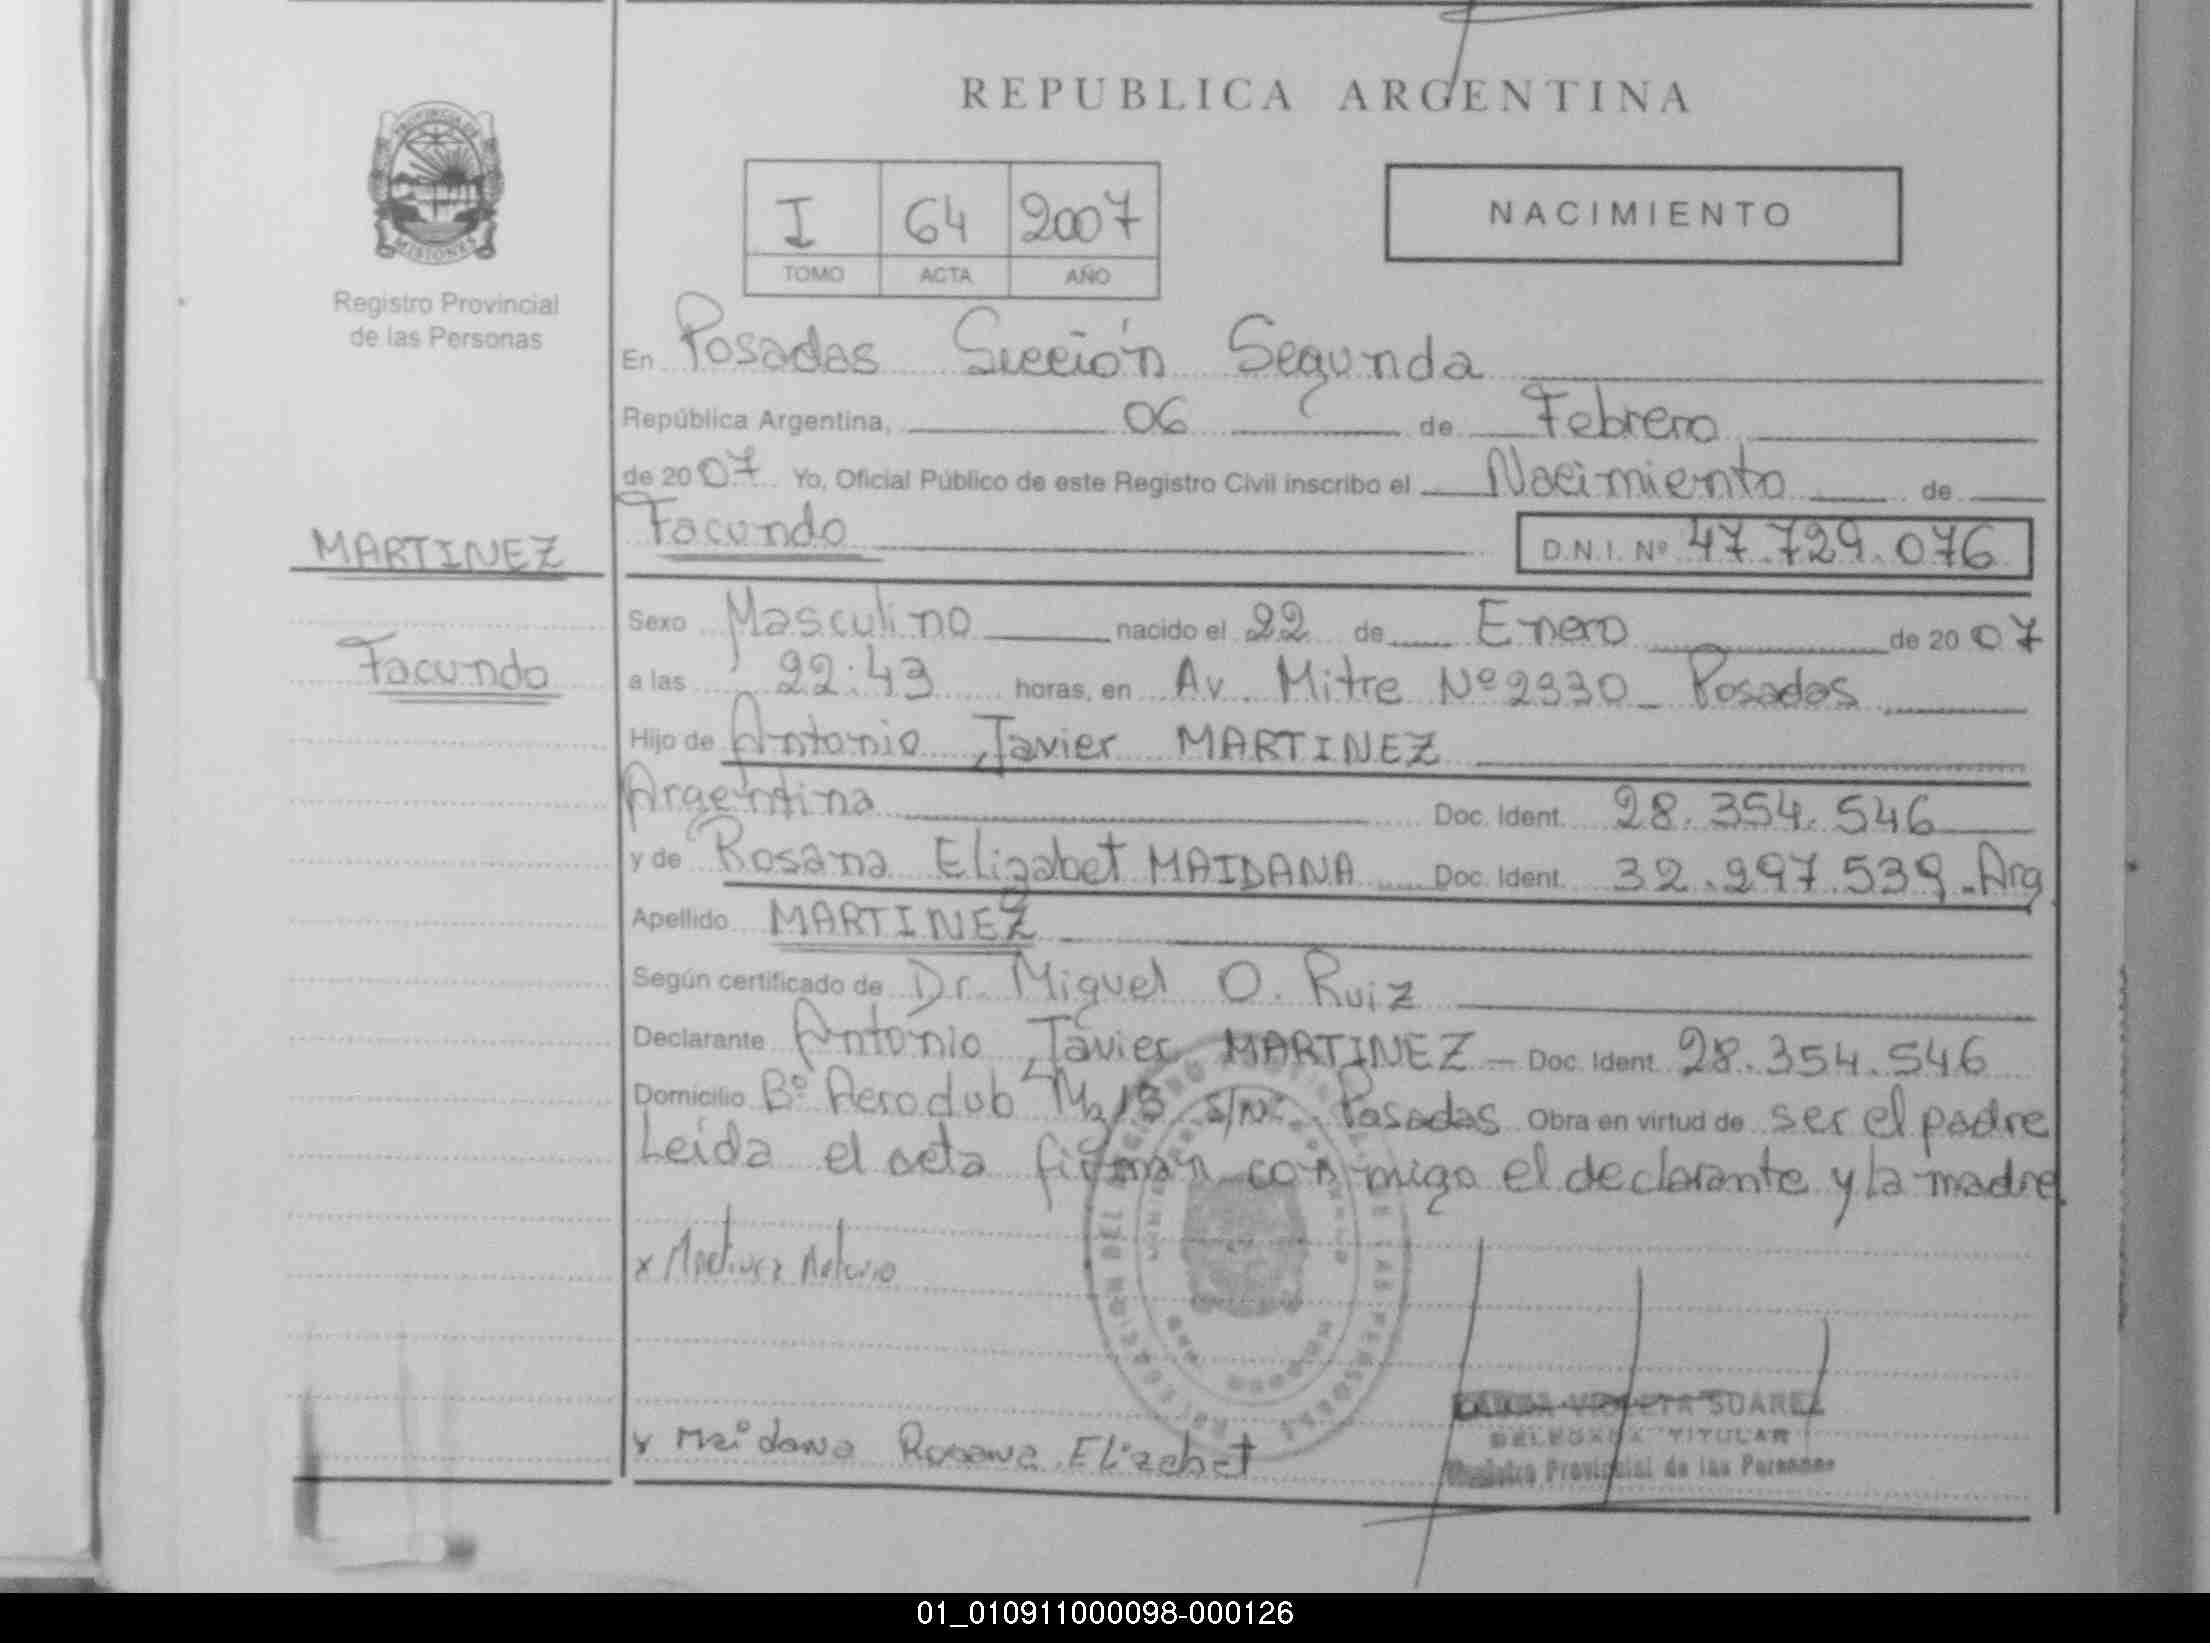 REPUBLICA ARGENTINA
PROVINCIA DE
MISIONES
Registro Provincial
de las Personas
I 64 2007
TOMO ACTA AÑO
NACIMIENTO
En Posadas Sección Segunda
República Argentina, 06 de Febrero
de 2007 Yo, Oficial Público de este Registro Civil inscribo el Nacimiento de
Facundo D.N.I. Nº 47.729.076
MARTINEZ
Facundo
Sexo Masculino nacido el 22 de Enero de 2007
a las 22:43 horas, en Av. Mitre Nº 2330 - Posadas
Hijo de Antonio Javier MARTINEZ
Argentina Doc. Ident. 28.354.546
y de Rosana Elizabet MAIDANA Doc. Ident. 32.297.539 - Arg
Apellido MARTINEZ
Según certificado de Dr. Miguel O. Ruiz
Declarante Antonio Javier MARTINEZ - Doc. Ident. 28.354.546
Domicilio Bº Aeroclub s/Nº Posadas Obra en virtud de ser el padre
Leída el acta firman conmigo el declarante y la madre
x Martinez Antonio
x Maidana Rosana Elizabet
SUAREZ
TITULAR
Registro Provincial de las Personas
01_010911000098-000126